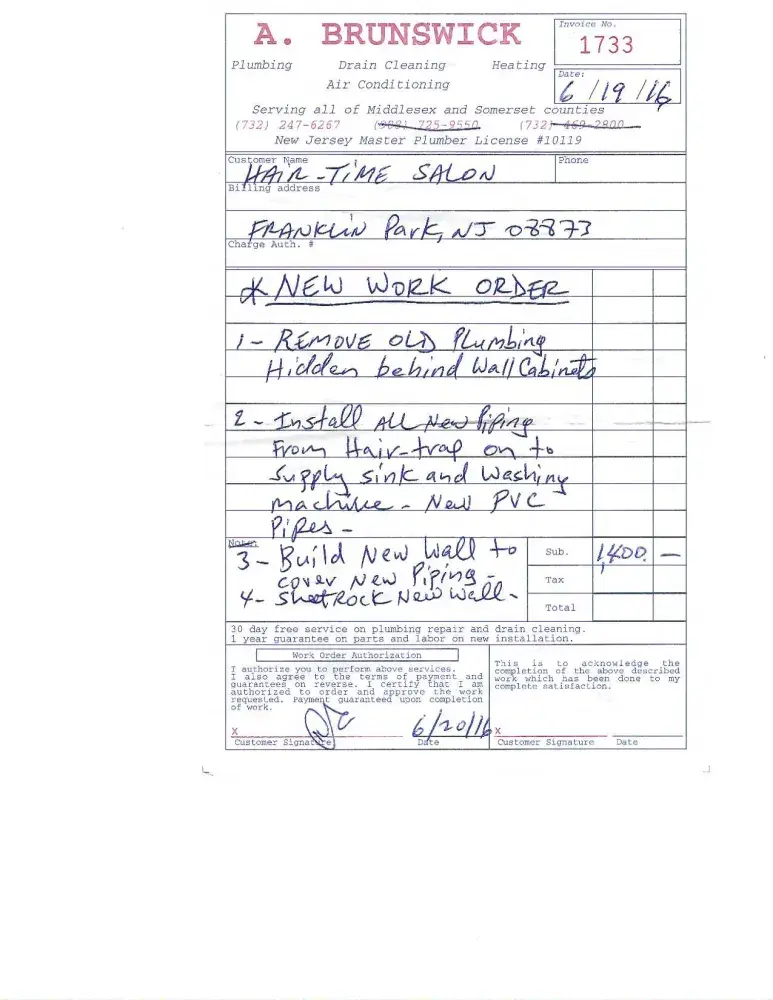 A. BRUNSWICK
Invoice No.
1733
Plumbing Drain Cleaning Heating
Air Conditioning
Date:
6/19/16
Serving all of Middlesex and Somerset counties
(732) 247-6267 (908) 725-9550 (732) 469-2800
New Jersey Master Plumber License #10119
Customer Name
Phone
HAIR-TIME SALON
Billing address
FRANKLIN Park, NJ 08873
Charge Auth. #
* NEW WORK ORDER
1- REMOVE OLD Plumbing
Hidden behind Wall Cabinets
2- Install ALL New Piping
From Hair-trap on to
Supply sink and Washing
machine - New PVC
Pipes -
Notes
3- Build New Wall to
cover New Piping -
4- SheetRock New Wall -
Sub. 1,400. —
Tax
Total
30 day free service on plumbing repair and drain cleaning.
1 year guarantee on parts and labor on new installation.
Work Order Authorization
I authorize you to perform above services.
I also agree to the terms of payment and
guarantees on reverse. I certify that I am
authorized to order and approve the work
requested. Payment guaranteed upon completion
of work.
X
6/20/16
Customer Signature Date
This is to acknowledge the
completion of the above described
work which has been done to my
complete satisfaction.
X
Customer Signature Date